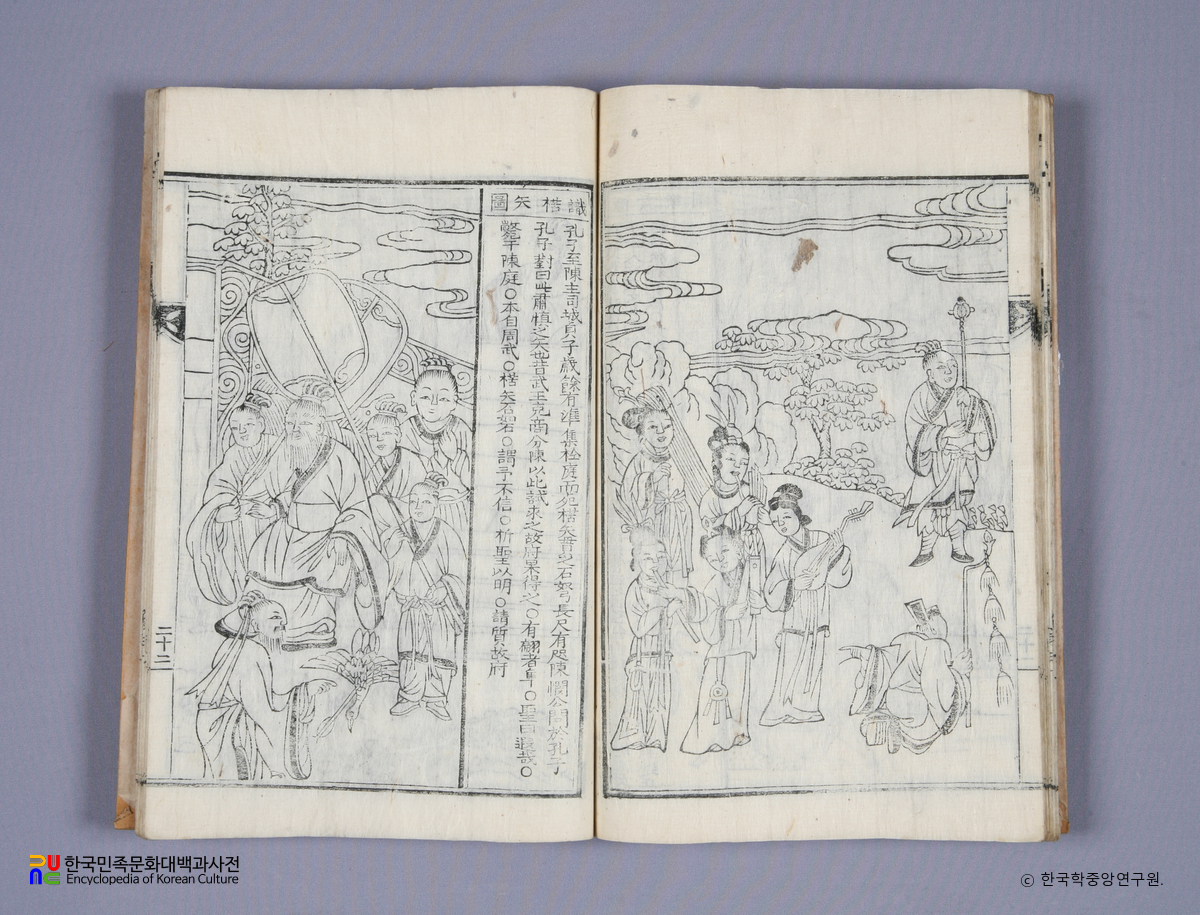 識楛矢圖
孔子至陳主司城貞子歲餘有準集於庭而死楛矢貫之石弩長尺有咫陳憫公問於孔子
孔子對曰此肅慎之矢也昔武王克商分陳以此試求之故府果得之○有翩者隼○聖曰遐哉○
斃于陳庭○本自周武○楛矢石砮○謂予不信○析聖以明○請質故府
二十二
한국민족문화대백과사전
Encyclopedia of Korean Culture
ⓒ 한국학중앙연구원.